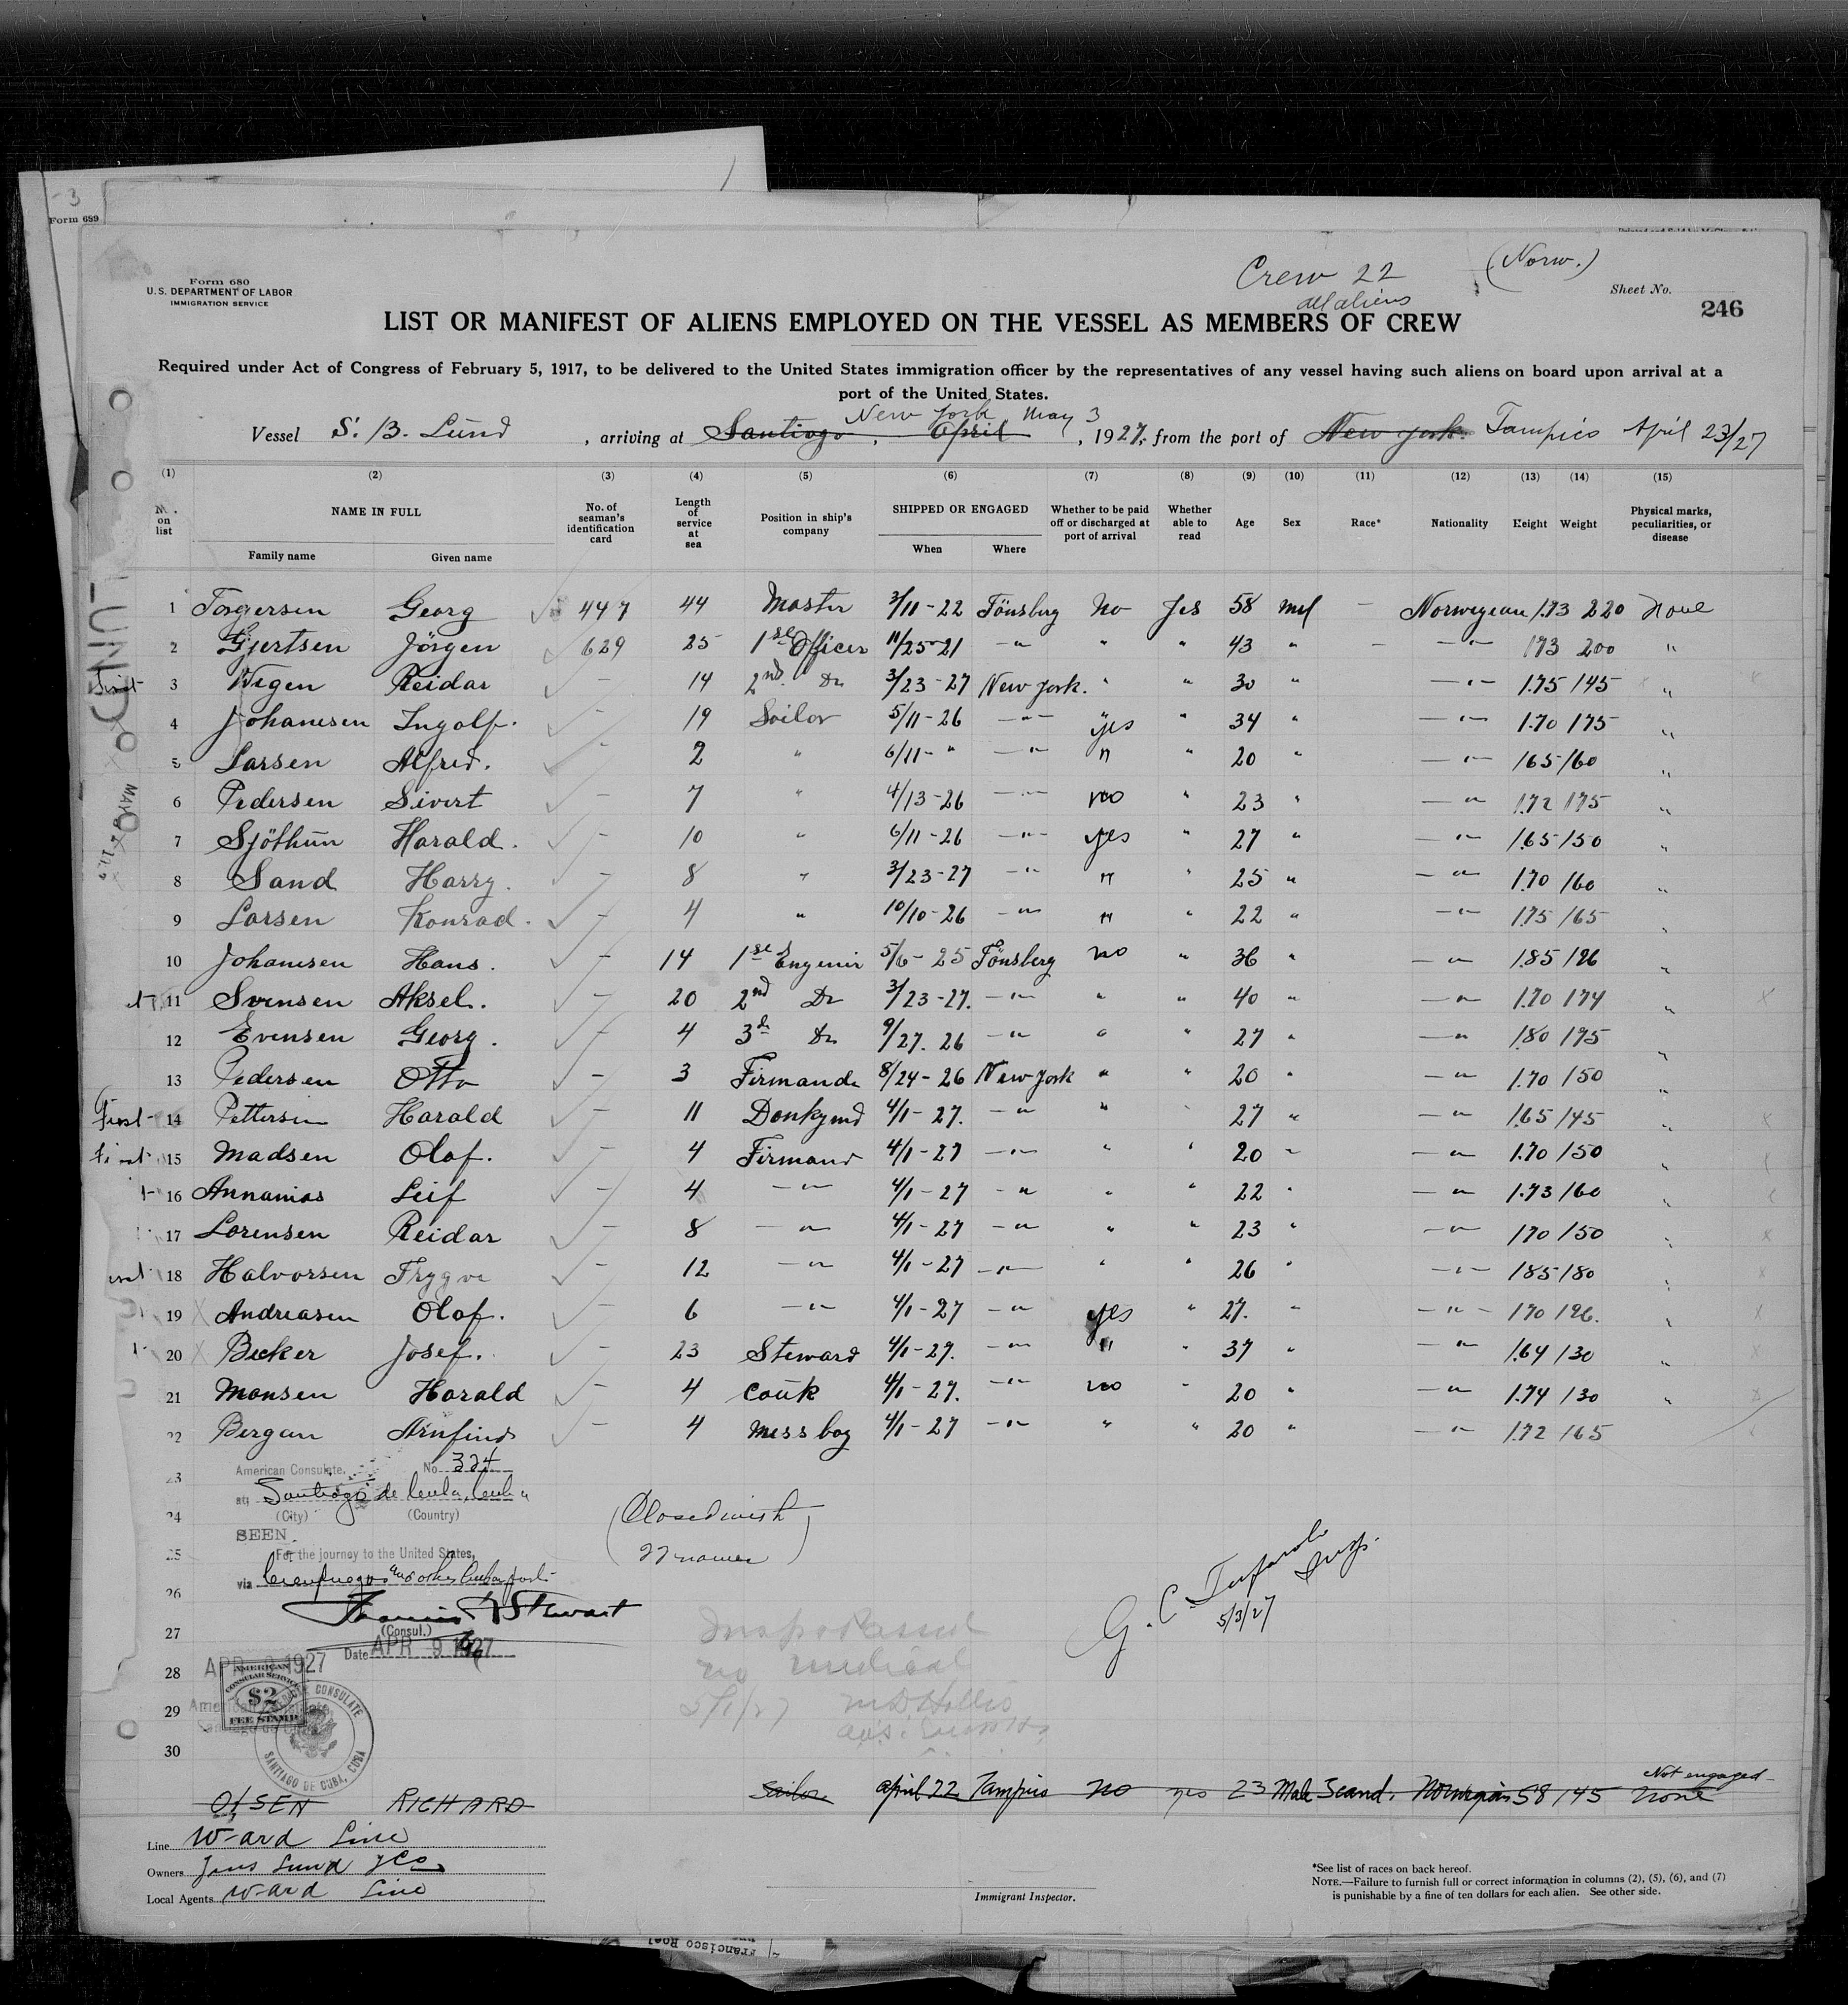 - 3
Form 689
Form 680
U. S. DEPARTMENT OF LABOR
IMMIGRATION SERVICE
Crew 22
all aliens
(Norw.)
Sheet No.
246
LIST OR MANIFEST OF ALIENS EMPLOYED ON THE VESSEL AS MEMBERS OF CREW
Required under Act of Congress of February 5, 1917, to be delivered to the United States immigration officer by the representatives of any vessel having such aliens on board upon arrival at a
port of the United States.
New York May 3
Vessel S. B. Lund , arriving at Santiago , April , 1927, from the port of New York. Tampico April 23/27
(1) (2) (3) (4) (5) (6) (7) (8) (9) (10) (11) (12) (13) (14) (15)
No. on list NAME IN FULL Family name Given name No. of seaman's identification card Length of service at sea Position in ship's company SHIPPED OR ENGAGED When Where Whether to be paid off or discharged at port of arrival Whether able to read Age Sex Race* Nationality Height Weight Physical marks, peculiarities, or disease
1 Torgersen Georg 447 44 Master 3/11-22 Tönsberg No Yes 58 mal - Norwegean 1.73 220 None
2 Gjertsen Jörgen 629 25 1st Officer 11/25-21 -"- " " 43 " - -"- 173 200 "
3 Wegen Reidar - 14 2nd Do 3/23-27 New York. " " 30 " -"- 1.75 145 "
4 Johannesen Ingolf. - 19 Sailor 5/11-26 -"- yes " 34 " -"- 1.70 175 "
5 Larsen Alfred. - 2 " 6/11-" -"- " " 20 " -"- 165 160 "
6 Pedersen Sivert - 7 " 4/13-26 -"- no " 23 " -"- 1.72 175 "
7 Sjöthun Harald. - 10 " 6/11-26 -"- yes " 27 " -"- 1.65 150 "
8 Sand Harry. - 8 " 3/23-27 -"- " " 25 " -"- 1.70 160 "
9 Larsen Konrad. - 4 " 10/10-26 -"- " " 22 " -"- 1.75 165 "
10 Johannesen Hans. - 14 1st Engenir 5/6-25 Tönsberg no " 36 " -"- 1.85 196 "
11 Svensen Aksel. - 20 2nd Do 3/23-27. -"- " " 40 " -"- 1.70 174 "
12 Evensen Georg. - 4 3d Do 9/27. 26 -"- " " 27 " -"- 1.80 175 "
13 Pedersen Otto - 3 Firmand 8/24-26 New York " " 20 " -"- 1.70 150 "
First 14 Pettersen Harald - 11 Donkymd 4/1-27. -"- " " 27 " -"- 1.65 145 "
First 15 Madsen Olaf. - 4 Firmand 4/1-27 -"- " " 20 " -"- 1.70 150 "
16 Annanias Leif - 4 -"- 4/1-27 -"- " " 22 " -"- 1.73 160 "
17 Lorensen Reidar - 8 -"- 4/1-27 -"- " " 23 " -"- 170 150 "
18 Halvorsen Trygve - 12 -"- 4/1-27 -"- " " 26 " -"- 185 180 "
19 Andreasen Olof. - 6 -"- 4/1-27 -"- yes " 27. " -"- 170 196. "
20 Becker Josef. - 23 Steward 4/1-27. -"- " " 37 " -"- 1.64 130 "
21 Monsen Harald - 4 Couk 4/1-27. -"- no " 20 " -"- 1.74 130 "
22 Bergan Arnfind - 4 Mess boy 4/1-27 -"- " " 20 " -"- 1.72 165
23
24
25
26
27
28
29
30
American Consulate. No. 324
at Santiago de Cuba, Cuba
(City) (Country)
SEEN
For the journey to the United States,
via Cienfuegos and other Cuban ports
Francis R Stewart
(Consul.)
Date APR 9 1927
APR 9 1927
AMERICAN
CONSULAR SERVICE
$2
FEE STAMP
AMERICAN CONSULATE
SANTIAGO DE CUBA, CUBA
(Closed with
22 names)
Insp. Passed
no medical
5/1/27
5/3/27
OLSEN RICHARD Sailor April 22 Tampico No yes 23 Male Scand. Norwegian 58 145 none
Not engaged
Line Ward Line
Owners Jens Lund & Co
Local Agents Ward Line
Immigrant Inspector.
*See list of races on back hereof.
NOTE.—Failure to furnish full or correct information in columns (2), (5), (6), and (7)
is punishable by a fine of ten dollars for each alien. See other side.
Francisco